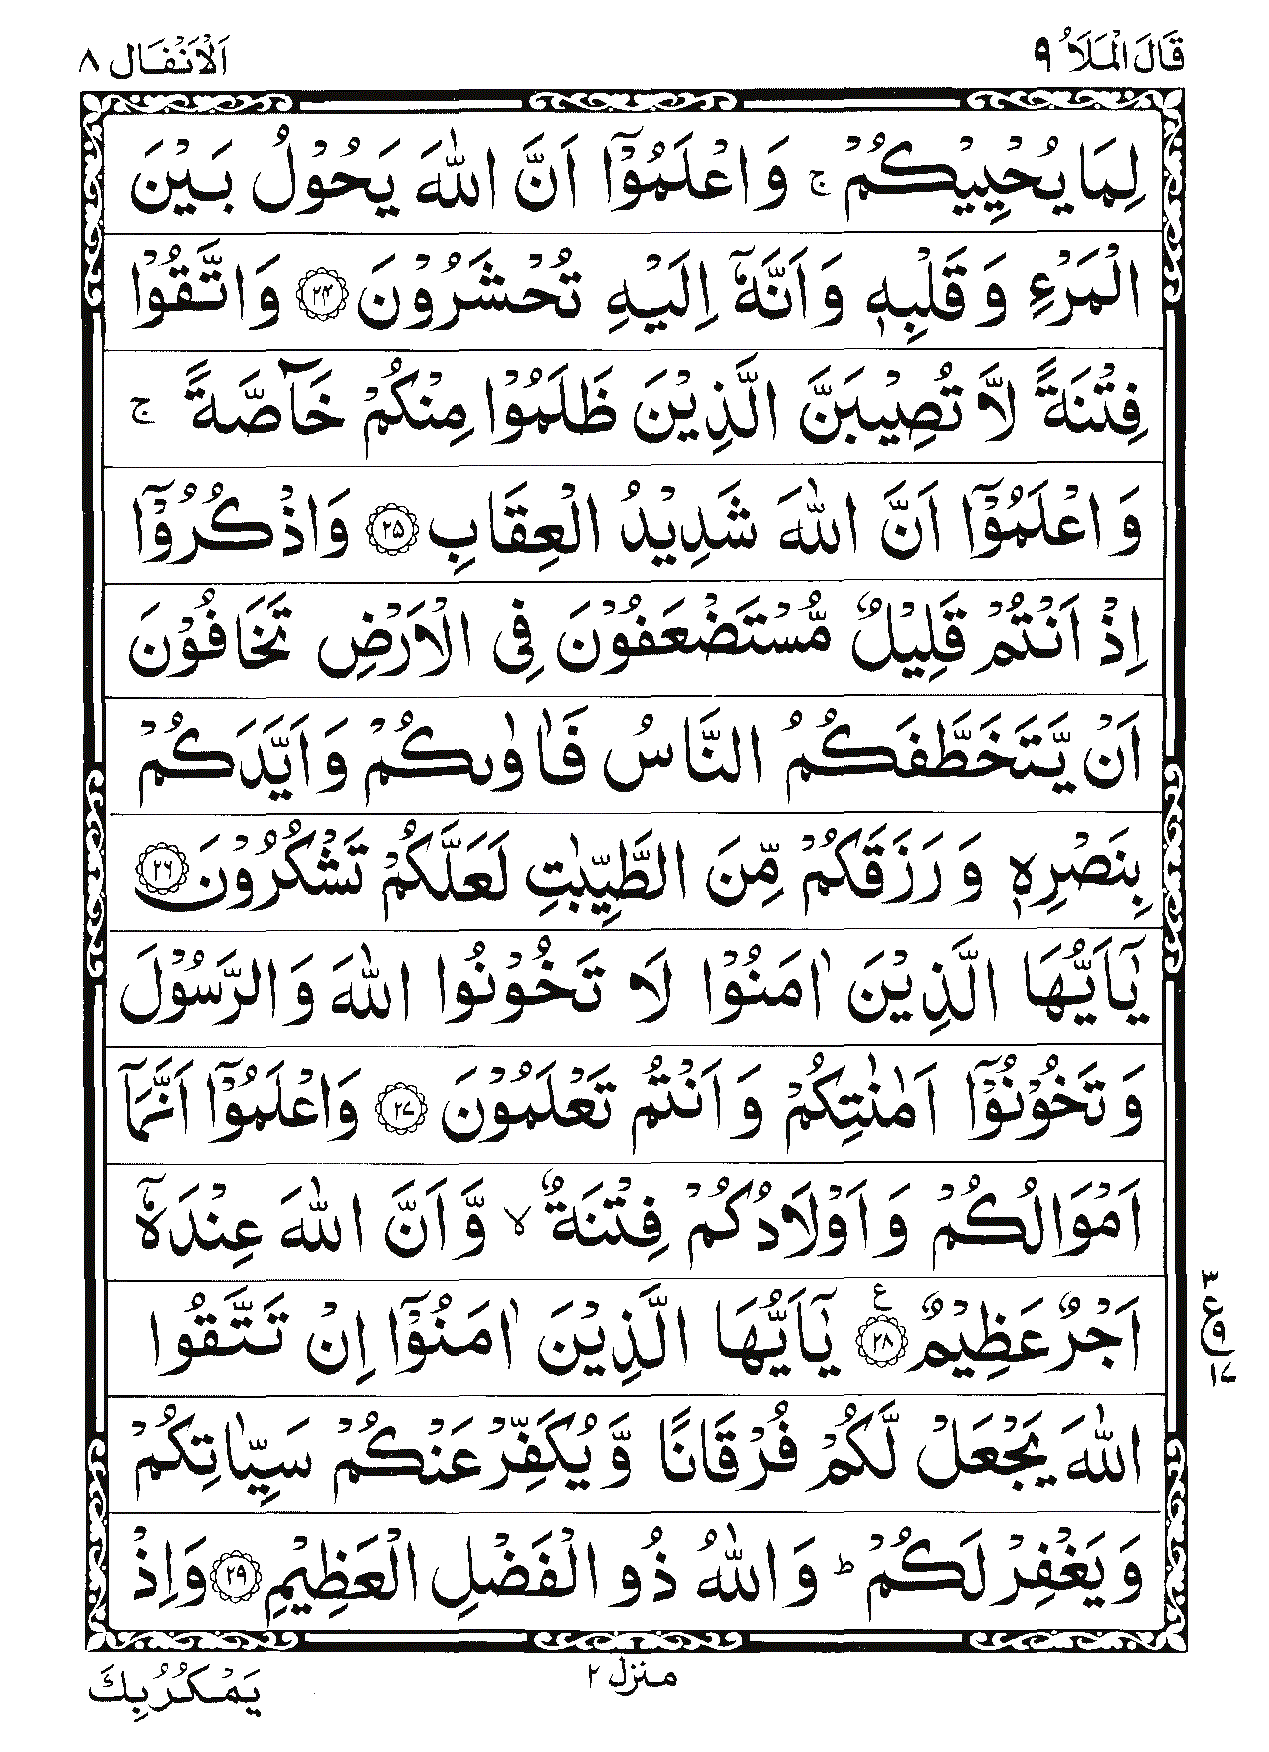 قَالَ الْمَلَاُ ٩
اَلْاَنْفَال ٨
لِمَا يُحْيِيْكُمْ ۚ وَاعْلَمُوْۤا اَنَّ اللّٰهَ يَحُوْلُ بَيْنَ
الْمَرْءِ وَ قَلْبِهٖ وَ اَنَّهٗۤ اِلَيْهِ تُحْشَرُوْنَ ﴿۲۴﴾ وَاتَّقُوْا
فِتْنَةً لَّا تُصِيْبَنَّ الَّذِيْنَ ظَلَمُوْا مِنْكُمْ خَآصَّةً ۚ
وَاعْلَمُوْۤا اَنَّ اللّٰهَ شَدِيْدُ الْعِقَابِ ﴿۲۵﴾ وَاذْكُرُوْۤا
اِذْ اَنْتُمْ قَلِيْلٌ مُّسْتَضْعَفُوْنَ فِى الْاَرْضِ تَخَافُوْنَ
اَنْ يَّتَخَطَّفَكُمُ النَّاسُ فَاٰوٰىكُمْ وَ اَيَّدَكُمْ
بِنَصْرِهٖ وَ رَزَقَكُمْ مِّنَ الطَّيِّبٰتِ لَعَلَّكُمْ تَشْكُرُوْنَ ﴿۲۶﴾
يٰۤاَيُّهَا الَّذِيْنَ اٰمَنُوْا لَا تَخُوْنُوا اللّٰهَ وَالرَّسُوْلَ
وَ تَخُوْنُوْۤا اَمٰنٰتِكُمْ وَ اَنْتُمْ تَعْلَمُوْنَ ﴿۲۷﴾ وَاعْلَمُوْۤا اَنَّمَاۤ
اَمْوَالُكُمْ وَ اَوْلَادُكُمْ فِتْنَةٌ ۙ وَّ اَنَّ اللّٰهَ عِنْدَهٗۤ
اَجْرٌ عَظِيْمٌ ﴿۲۸﴾ ع يٰۤاَيُّهَا الَّذِيْنَ اٰمَنُوْۤا اِنْ تَتَّقُوا
٣
ع
٩
١٧
اللّٰهَ يَجْعَلْ لَّكُمْ فُرْقَانًا وَّ يُكَفِّرْ عَنْكُمْ سَيِّاٰتِكُمْ
وَيَغْفِرْ لَكُمْ ؕ وَاللّٰهُ ذُو الْفَضْلِ الْعَظِيْمِ ﴿۲۹﴾ وَاِذْ
منزل ٢
يَمْكُرُ بِكَ